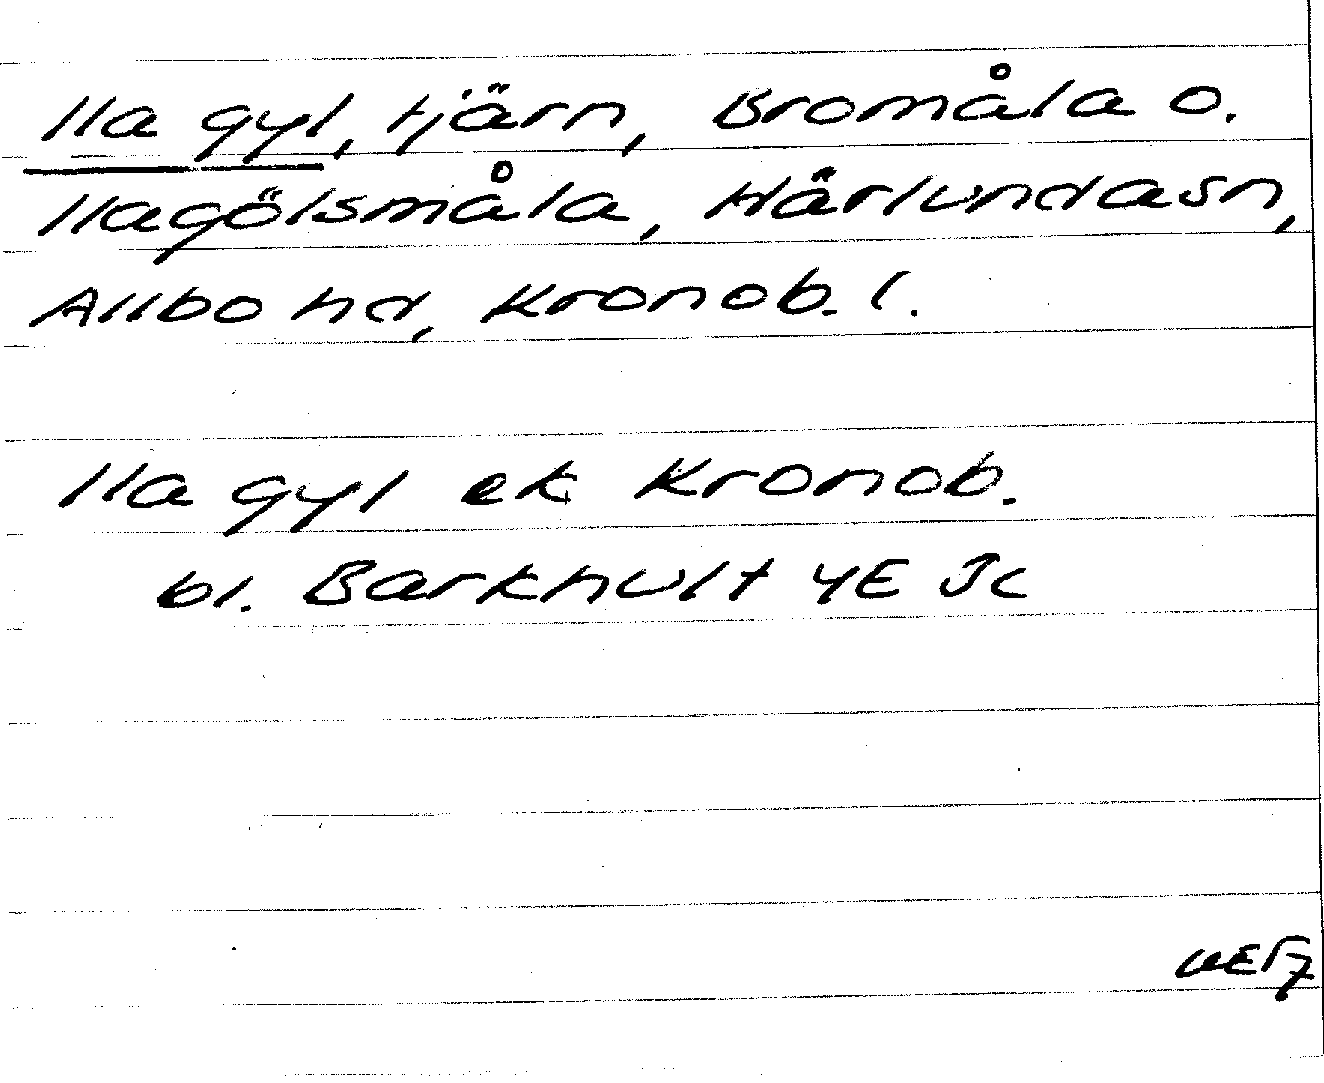 Illa gyl, tjärn, Bromåla o.
Illagölsmåla, Härlunda sn,
Allbo hd, Kronob. l.
Illa gyl ek Kronob.
bl. Barkhult 4E Jc